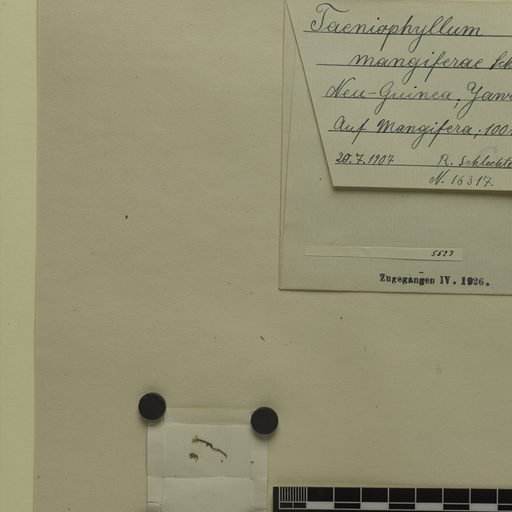 Taeniophyllum
mangiferae Sch
Neu-Guinea, Jaw
Auf Mangifera; 100
20.7.1907 R. Schlecht
N. 16317.
5523
Zugegangen IV. 1926.